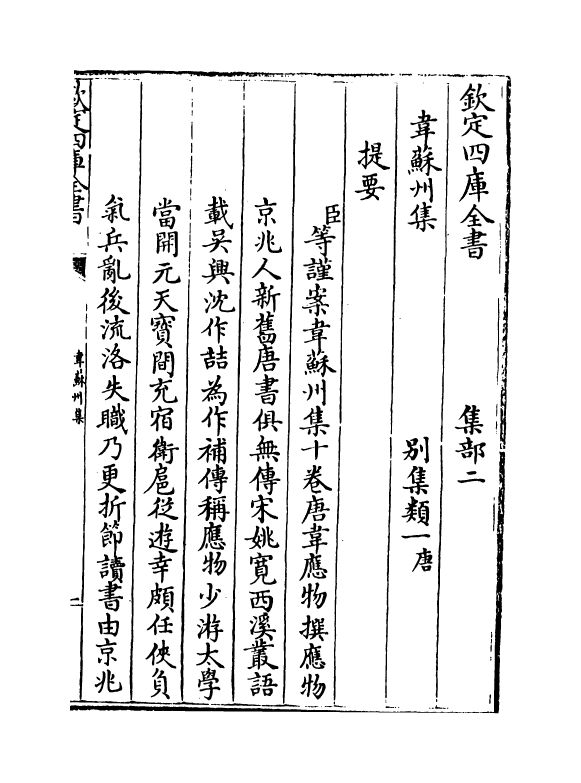 欽定四庫全書 集部二
韋蘇州集 别集類一唐
提要
臣等謹案韋蘇州集十卷唐韋應物撰應物
京兆人新舊唐書俱無傳宋姚寛西溪叢語
載吳興沈作喆為作補傳稱應物少游太學
當開元天寶間充宿衛扈從遊幸頗任俠負
氣兵亂後流洛失職乃更折節讀書由京兆
欽定四庫全書
韋蘇州集